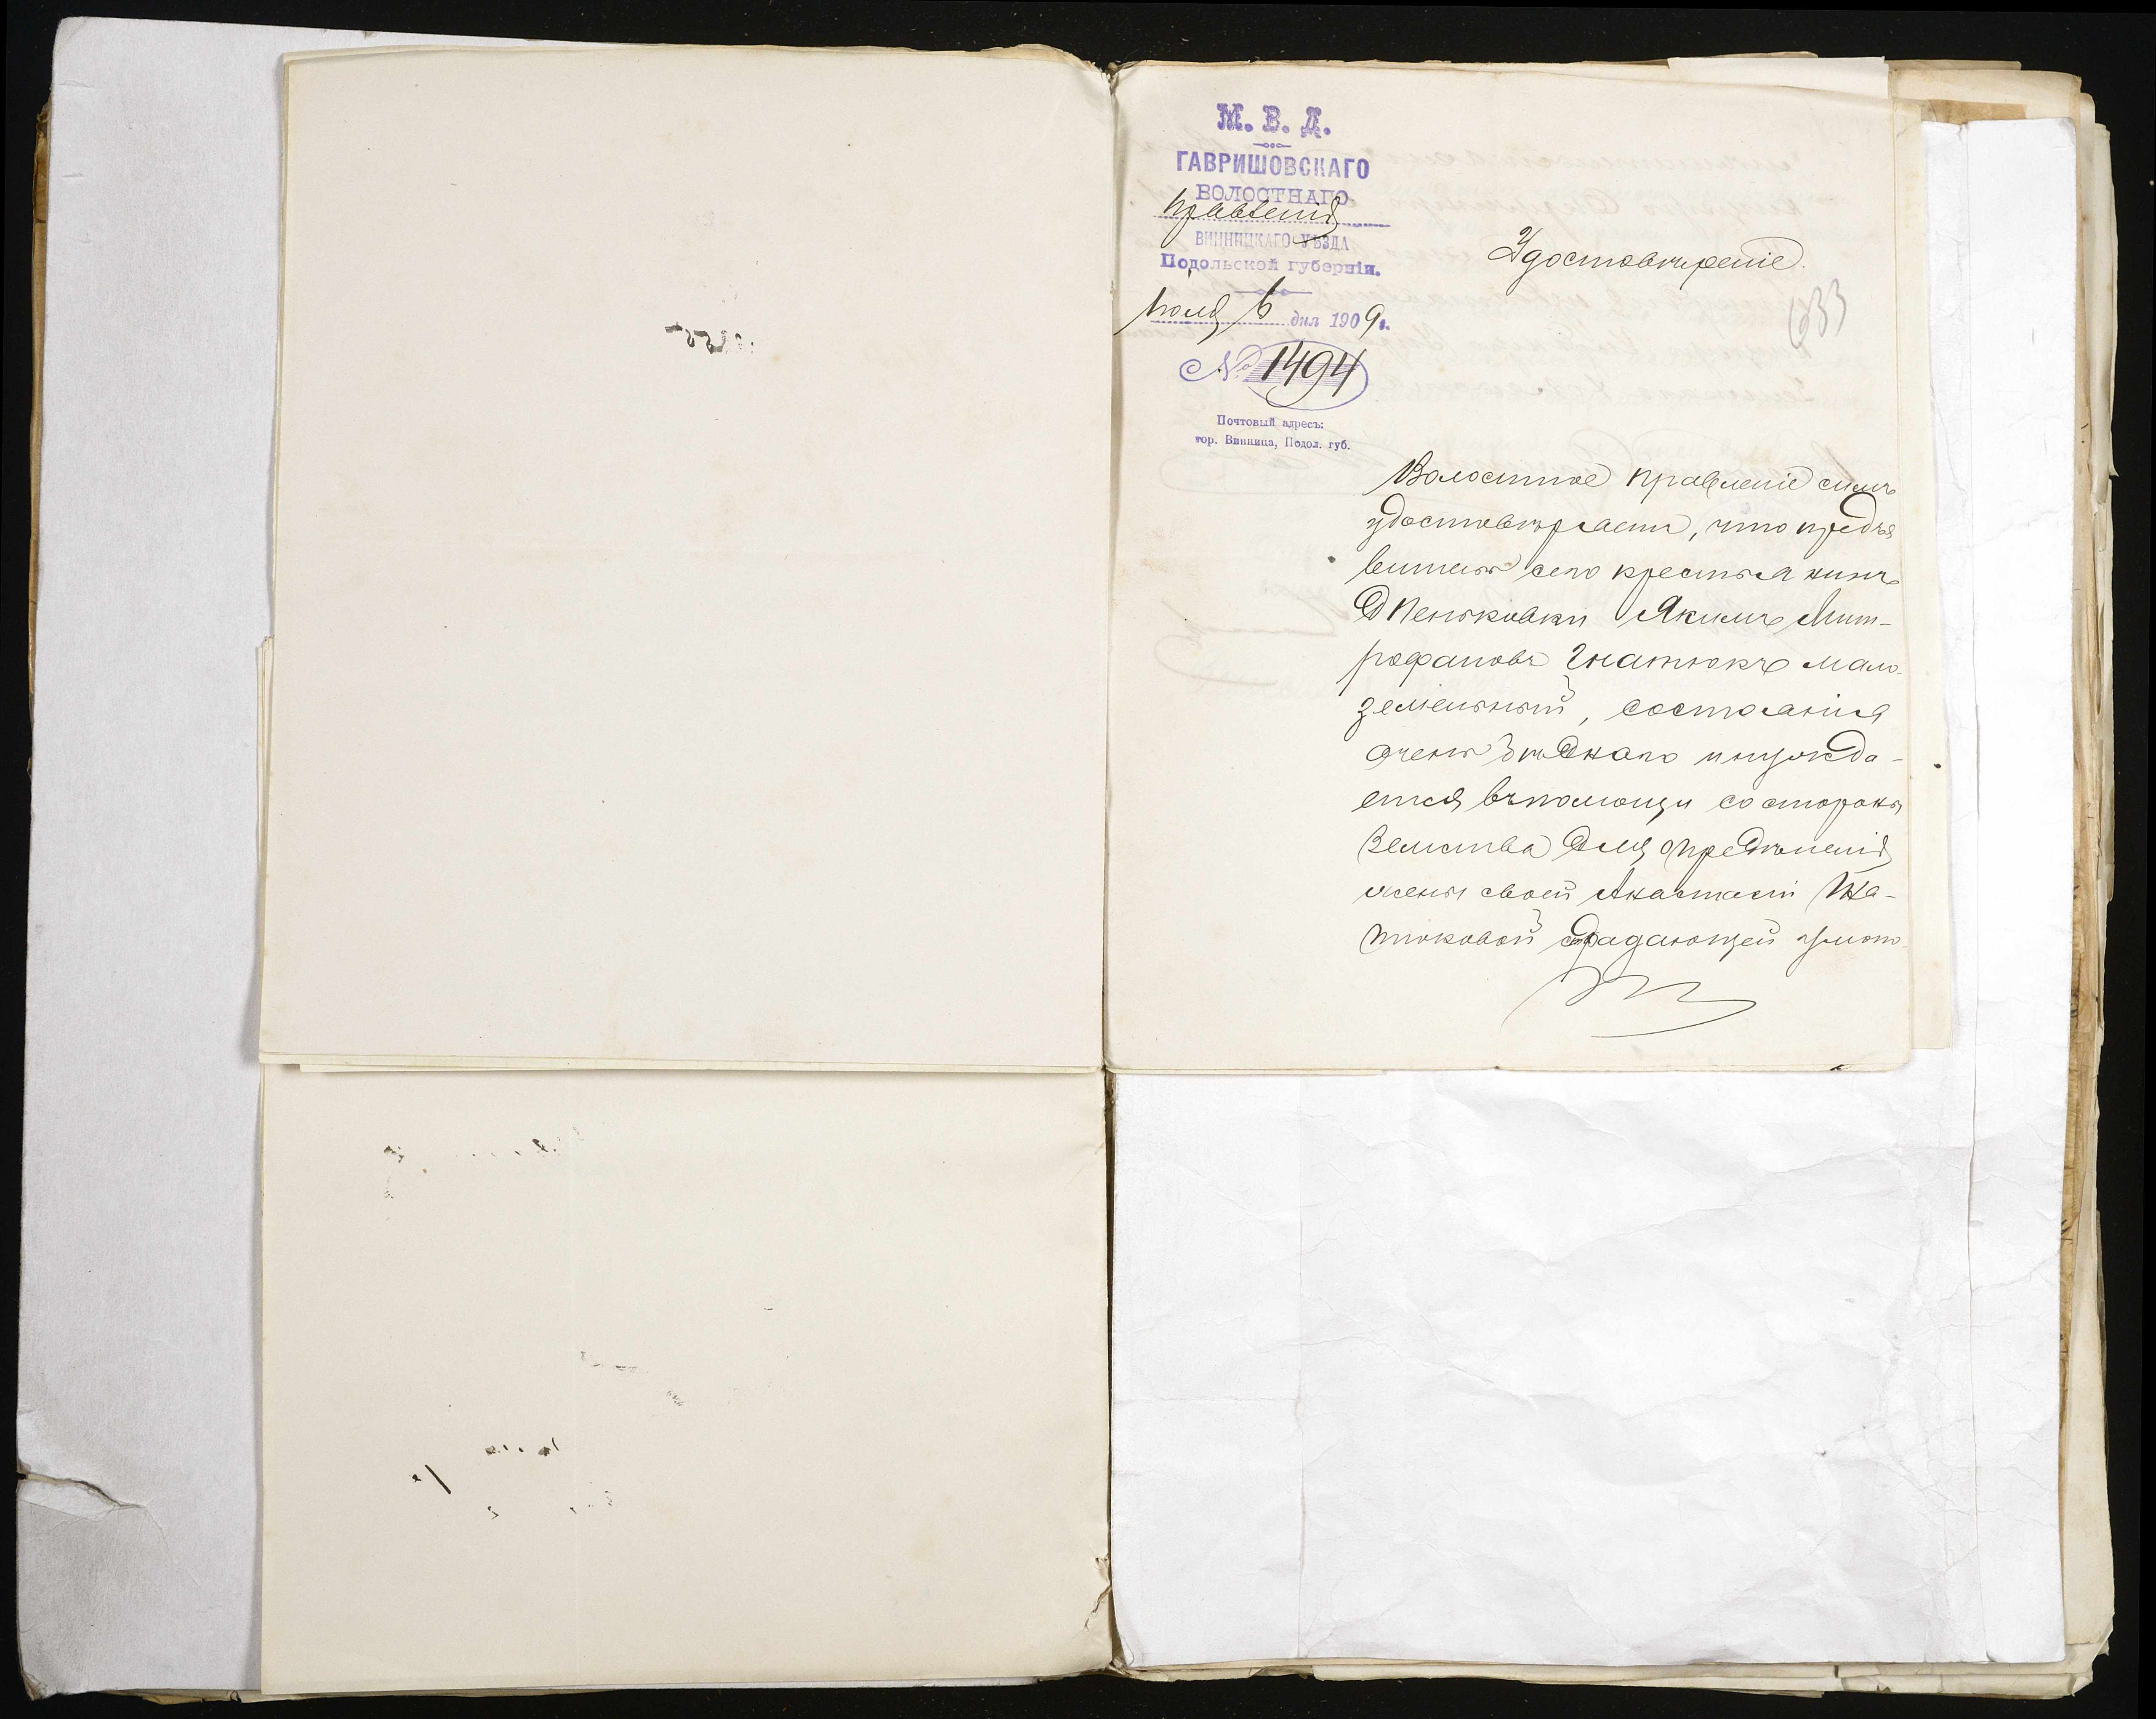 М. В. Д.
ГАВРИШОВСКАГО
ВОЛОСТНАГО
правленія
ВИННИЦКАГО УѢЗДА
Подольской губерніи.
Іюля 6 дня 1909 г.
№ 1494
Почтовый адресъ:
гор. Винница, Подол. губ.
Удостовѣреніе.
Волостное правленіе симъ
удостовѣряетъ, что предъя
витель сего крестьянинъ
д Пеньковки Якимъ Мит-
рофановъ Гнатюкъ мало
земельный, состоянія
очень бѣднаго и нужда-
ется въ помощи со стороны
Земства для опредѣленія
жены своей Анастасіи Гна-
тюковой страдающей умопо